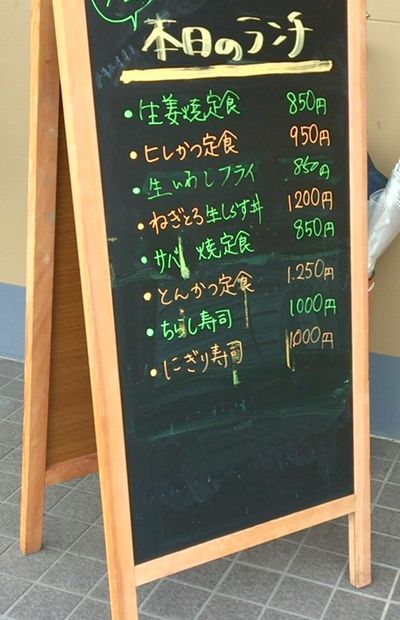 本日のランチ
・生姜焼定食 850円
・ヒレかつ定食 950円
・生いわしフライ 850円
・ねぎとろ生しらす丼 1200円
・サバ 焼定食 850円
・とんかつ定食 1.250円
・ちらし寿司 1000円
・にぎり寿司 1000円